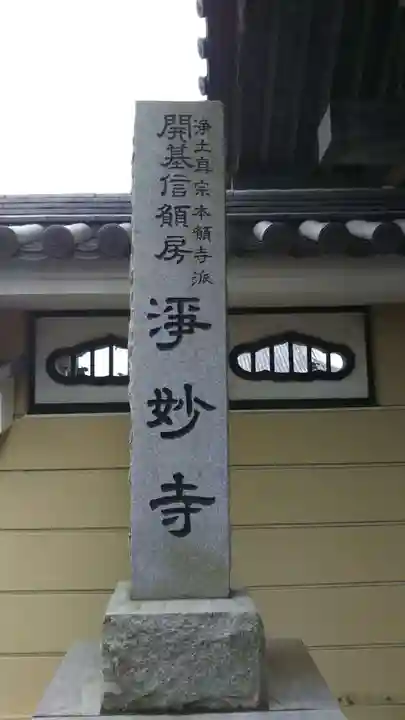 浄土真宗本願寺派
開基信願房
淨妙寺